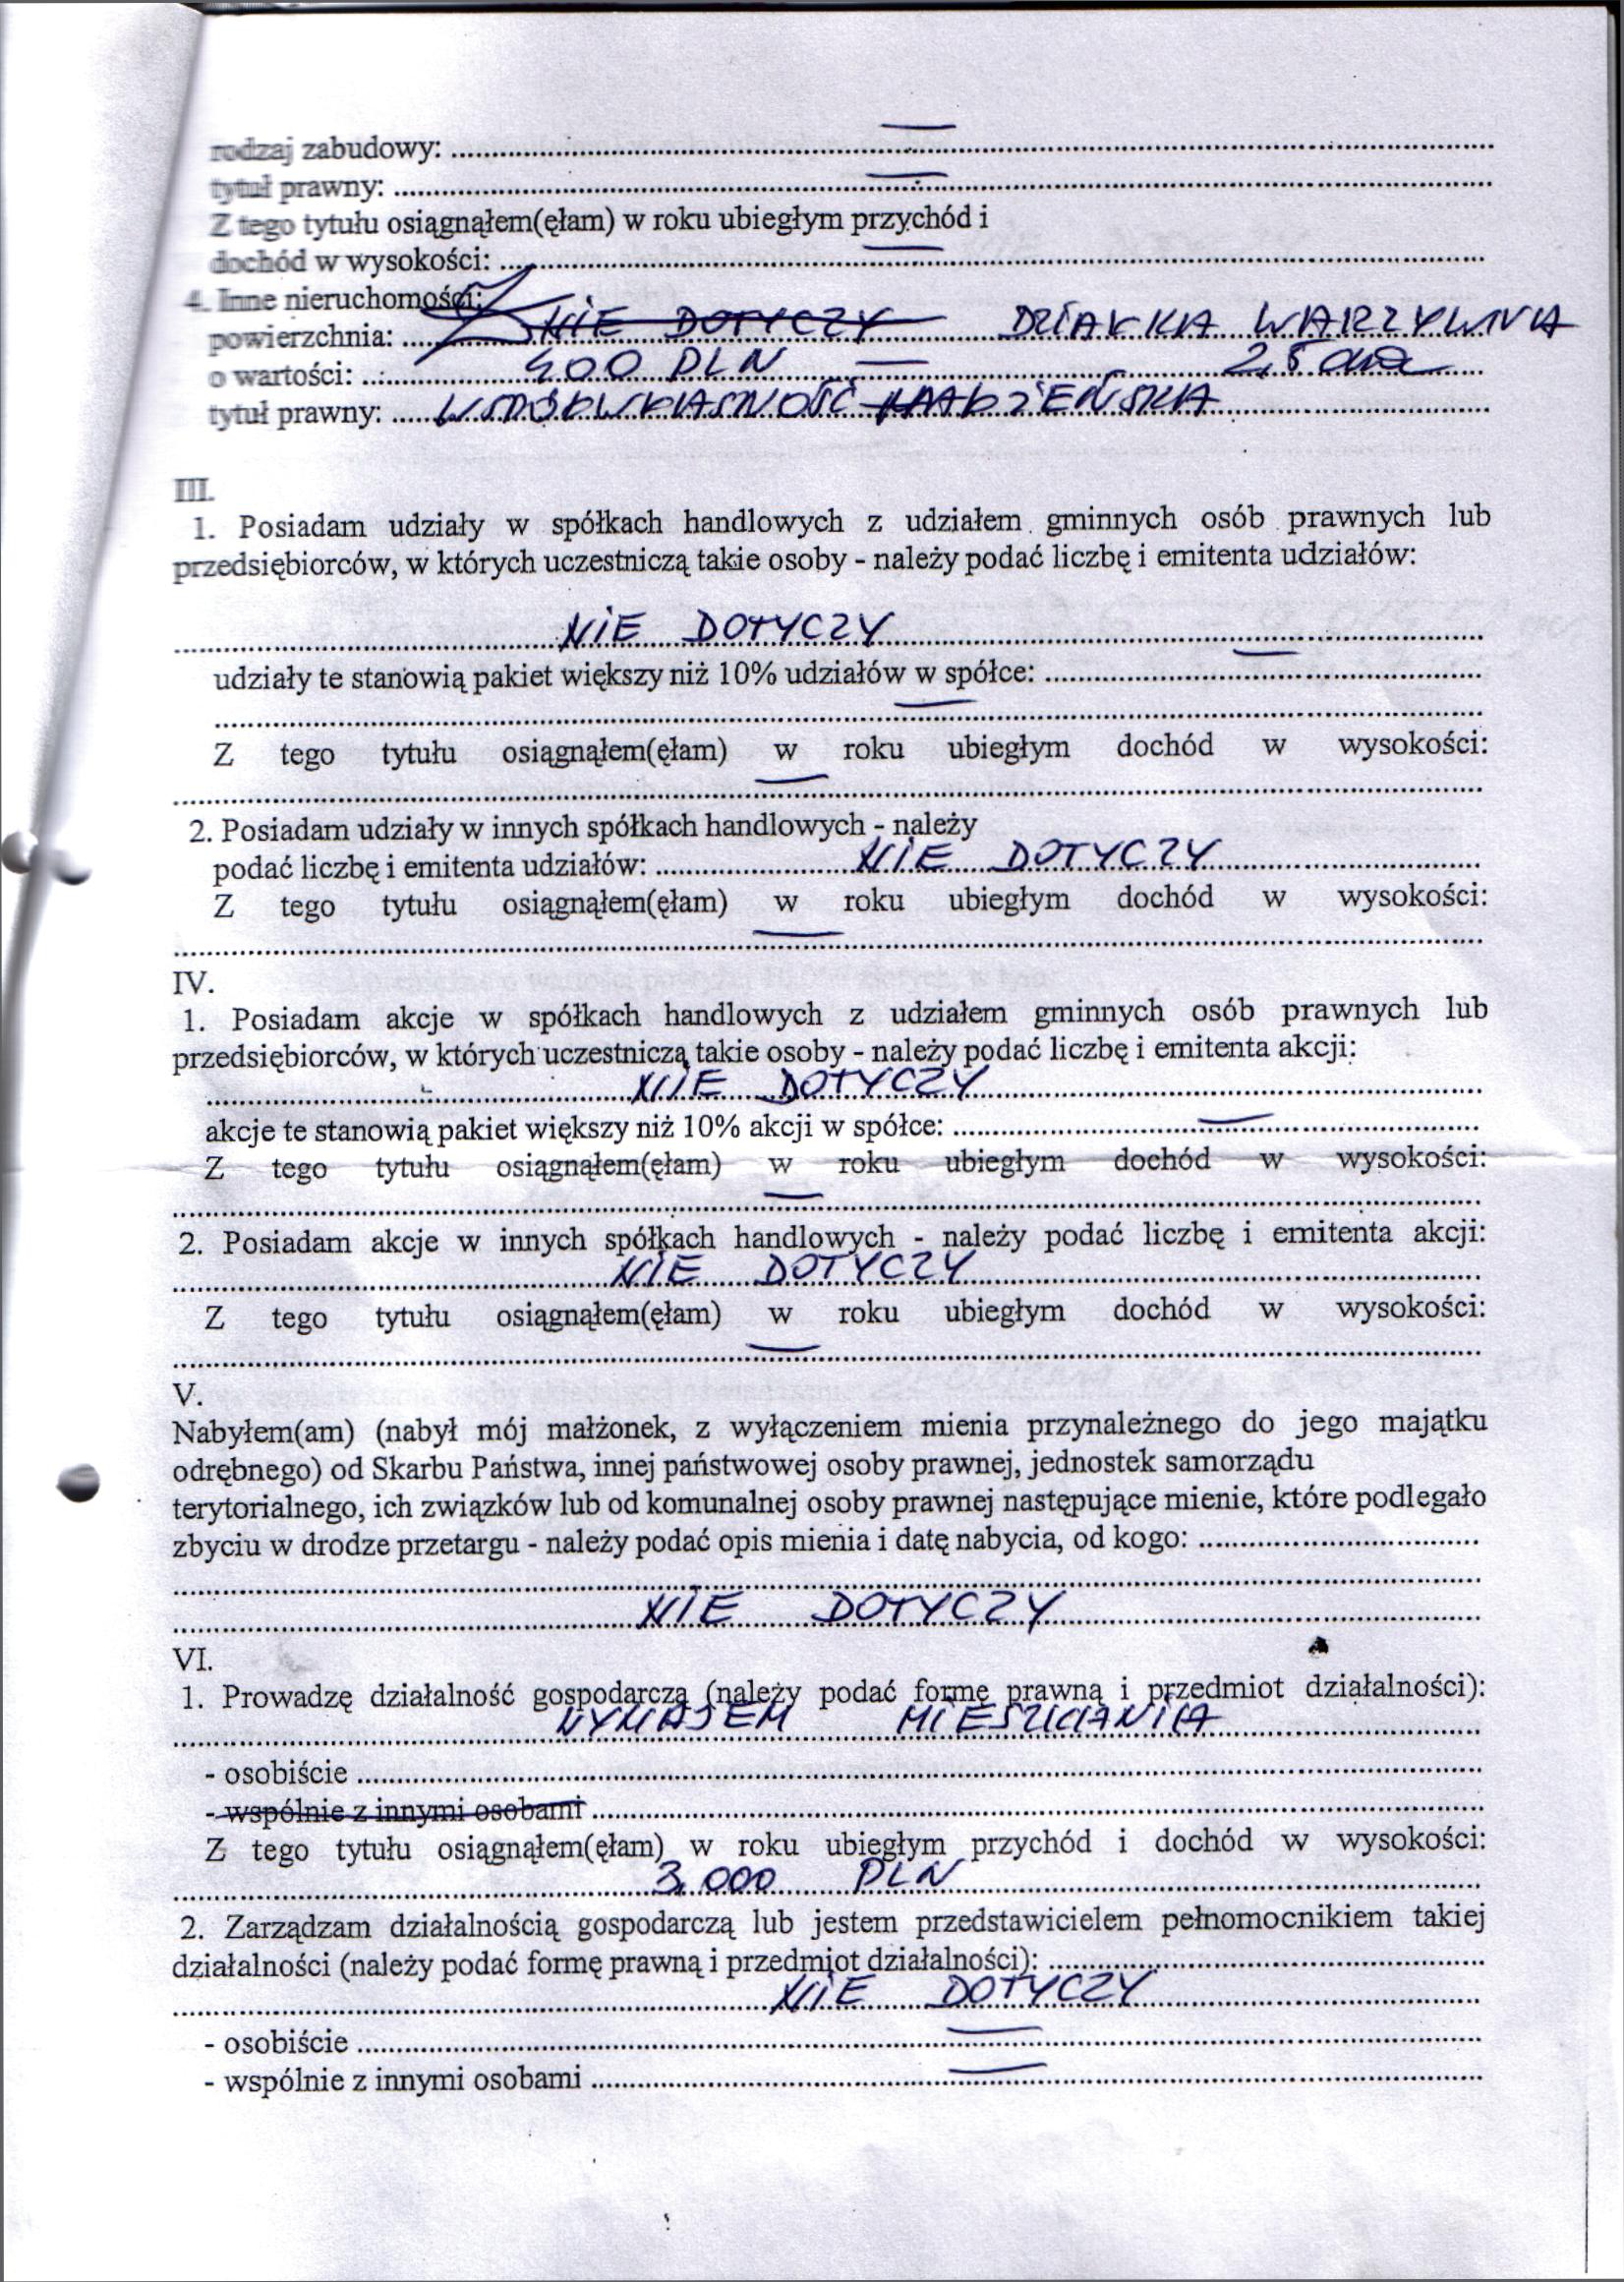 rodzaj zabudowy: ...... — ......
tytuł prawny: ...... — ......
Z tego tytułu osiągnąłem(ęłam) w roku ubiegłym przychód i
dochód w wysokości: ...... — ......
4. Inne nieruchomości:
powierzchnia: ...... NIE DOTYCZY DZIAŁKA WARZYWNA
o wartości: ...... 400 PLN — 2,5 ara ......
tytuł prawny: ...... WSPÓŁWŁASNOŚĆ MAŁŻEŃSKA ......
III.
1. Posiadam udziały w spółkach handlowych z udziałem gminnych osób prawnych lub
przedsiębiorców, w których uczestniczą takie osoby - należy podać liczbę i emitenta udziałów:
...... NIE DOTYCZY ......
udziały te stanowią pakiet większy niż 10% udziałów w spółce: ...... — ......
...... — ......
Z tego tytułu osiągnąłem(ęłam) w roku ubiegłym dochód w wysokości:
...... — ......
2. Posiadam udziały w innych spółkach handlowych - należy
podać liczbę i emitenta udziałów: ...... NIE DOTYCZY ......
Z tego tytułu osiągnąłem(ęłam) w roku ubiegłym dochód w wysokości:
...... — ......
IV.
1. Posiadam akcje w spółkach handlowych z udziałem gminnych osób prawnych lub
przedsiębiorców, w których uczestniczą takie osoby - należy podać liczbę i emitenta akcji:
...... NIE DOTYCZY ......
akcje te stanowią pakiet większy niż 10% akcji w spółce: ...... — ......
Z tego tytułu osiągnąłem(ęłam) w roku ubiegłym dochód w wysokości:
...... — ......
2. Posiadam akcje w innych spółkach handlowych - należy podać liczbę i emitenta akcji:
...... NIE DOTYCZY ......
Z tego tytułu osiągnąłem(ęłam) w roku ubiegłym dochód w wysokości:
...... — ......
V.
Nabyłem(am) (nabył mój małżonek, z wyłączeniem mienia przynależnego do jego majątku
odrębnego) od Skarbu Państwa, innej państwowej osoby prawnej, jednostek samorządu
terytorialnego, ich związków lub od komunalnej osoby prawnej następujące mienie, które podlegało
zbyciu w drodze przetargu - należy podać opis mienia i datę nabycia, od kogo: ......
......
...... NIE DOTYCZY ......
VI.
1. Prowadzę działalność gospodarczą (należy podać formę prawną i przedmiot działalności):
...... WYNAJEM MIESZKANIA ......
- osobiście ......
- wspólnie z innymi osobami ......
Z tego tytułu osiągnąłem(ęłam) w roku ubiegłym przychód i dochód w wysokości:
...... 3.000 PLN ......
2. Zarządzam działalnością gospodarczą lub jestem przedstawicielem pełnomocnikiem takiej
działalności (należy podać formę prawną i przedmiot działalności): ......
...... NIE DOTYCZY ......
- osobiście ...... — ......
- wspólnie z innymi osobami ...... — ......